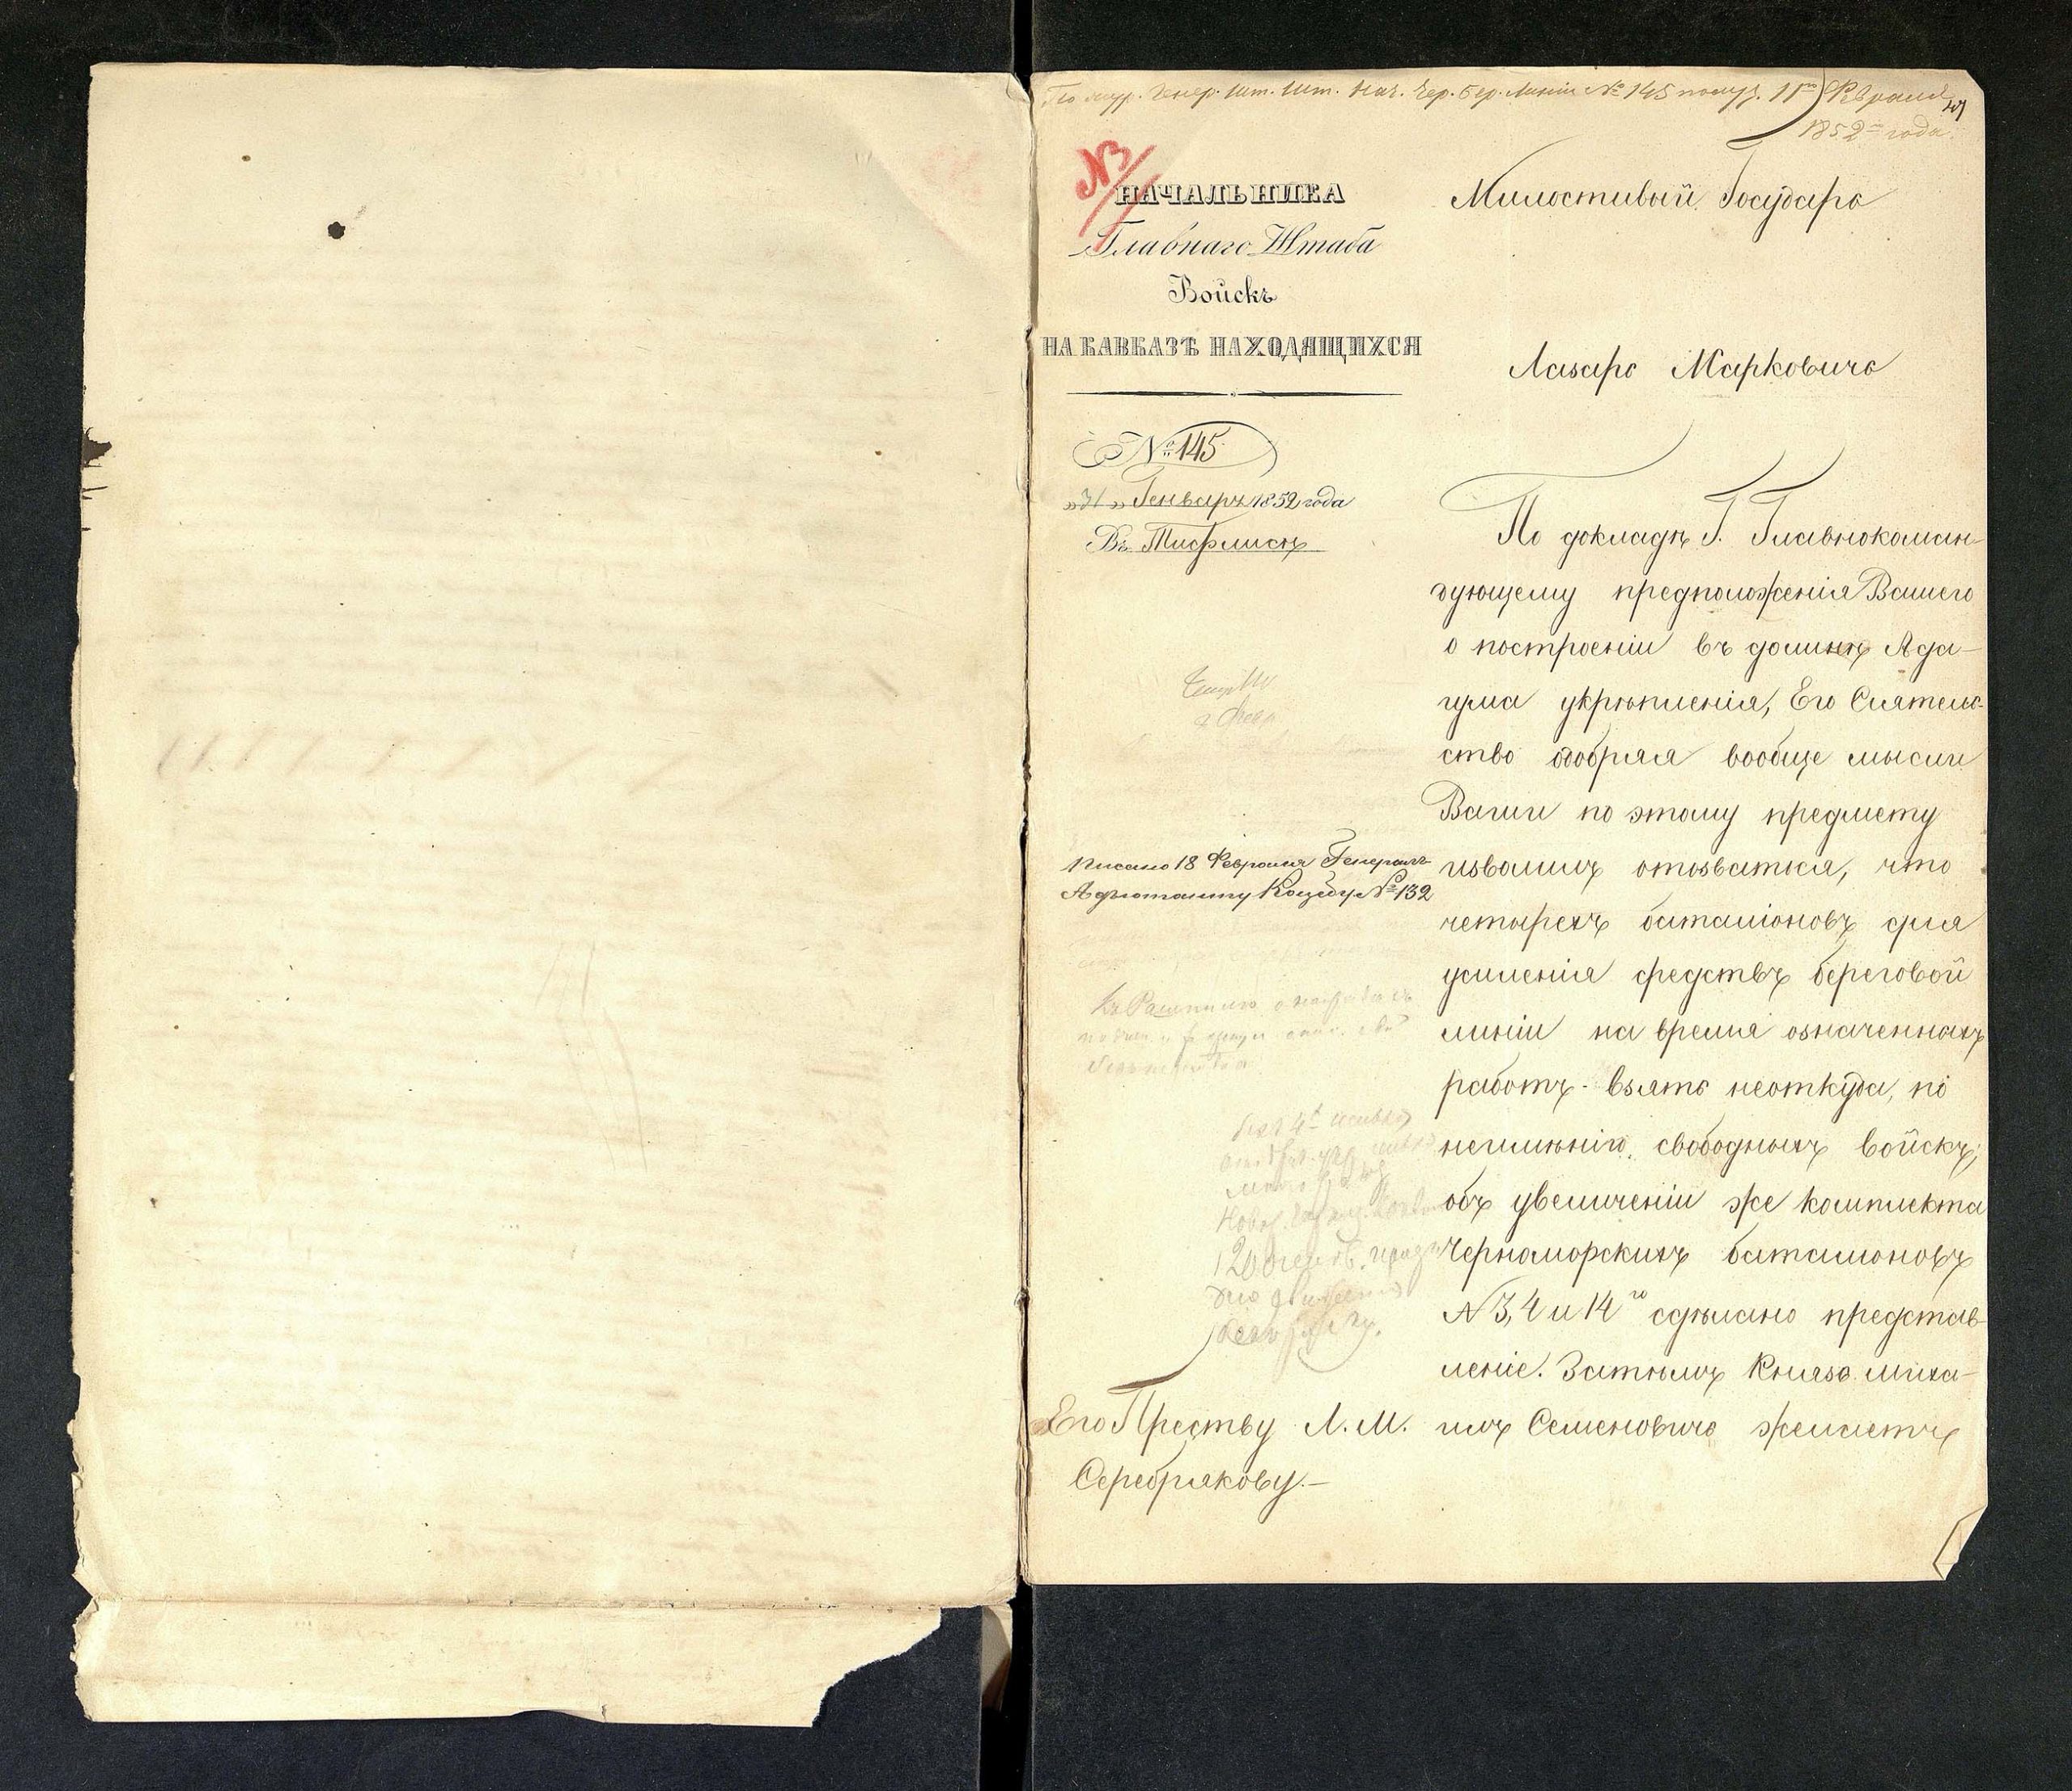 По жур. Генер. Шт. Шт. Нач. Чер. Бер. Линіи № 145 получ. 11го Февраля
1852 года.
№3
НАЧАЛЬНИКА
Главнаго Штаба
Войскъ
НА КАВКАЗѢ НАХОДЯЩИХСЯ
№ 145
"31" Генваря 1852 года
Въ Тифлисѣ
Милостивый Государь
Лазарь Марковичь
По докладѣ Г. Главнокоман-
дующему предположенія Вашего
о построеніи въ долинѣ Ада-
гума укрѣпленія, Его Сіятель-
ство одобряя вообще мысли
Ваши по этому предмету
изволилъ отозваться, что
четырехъ баталіоновъ для
усиленія средствъ береговой
линіи на время означенныхъ
работъ взять неоткуда, по
неимѣнію свободныхъ войскъ;
объ увеличеніи же комплекта
Черноморскихъ баталіоновъ
№ 3, 4 и 14го сдѣлано представ-
леніе. Затѣмъ Князь Миха-
илъ Семеновичь желаетъ
Писано 18 Февраля Генералъ
Адъютанту Коцебу № 132
Его Преству Л. М.
Серебрякову.—